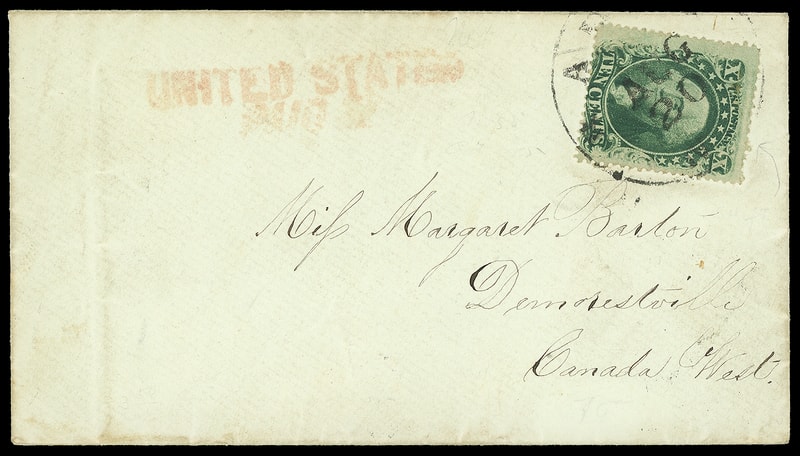 UNITED STATES
AUG
30
TEN CENTS
X
X
Miſs Margaret Barton
Demorestville
Canada West.